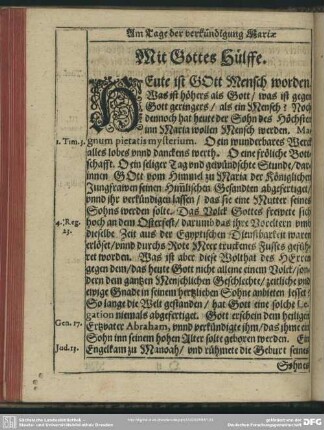 Am Tage der verkündigung Mariæ
Mit Gottes Hülffe.
HEute ist GOtt Mensch worden.
Was ist höhers als Gott / was ist gegen
Gott geringers / als ein Mensch? Noch
dennoch hat heut der Sohn des Höchsten
inn Maria wollen Mensch werden. Ma-
1. Tim. 3. gnum pietatis mysterium. O ein wunderbares Werck
alles lobes vnnd danckens werth. O eine fröliche Bott-
schafft. O ein seliger Tag vnd gewündschte Stunde / dar-
innen GOtt vom Himmel zu Maria der Königlichen
Jungfrawen seinen Himlischen Gesandten abgefertiget /
vnnd jhr verkündigen lassen / das sie eine Mutter seines
Sohns werden solte. Das Volck Gottes frewete sich
4. Reg. hoch an dem Osterfest / darumb das jhre Voreltern vmb
23. dieselbe Zeit aus der Egyptischen Dienstbarkeit waren
erlöset / vnnd durchs Rote Meer truckenes Fusses gefüh-
ret worden. Was ist aber diese Wolthat des HErrn
gegen dem / das heut Gott nicht alleine einem Volck / son-
dern dem gantzen Menschlichen Geschlechte / zeitliche vnd
ewige Gnade in seinem hertzlieben Sohne anbieten lesset?
So lange die Welt gestanden / hat Gott eine solche Le-
gation niemals abgefertiget. Gott erschein dem heiligen
Gen. 17. Ertzvater Abraham / vnnd verkündigte jhm / das jhme ein
Sohn inn seinem hohen Alter solte geboren werden. Ein
Jud. 13. Engel kam zu Manoah / vnd rühmete die Geburt seines
Sohnes